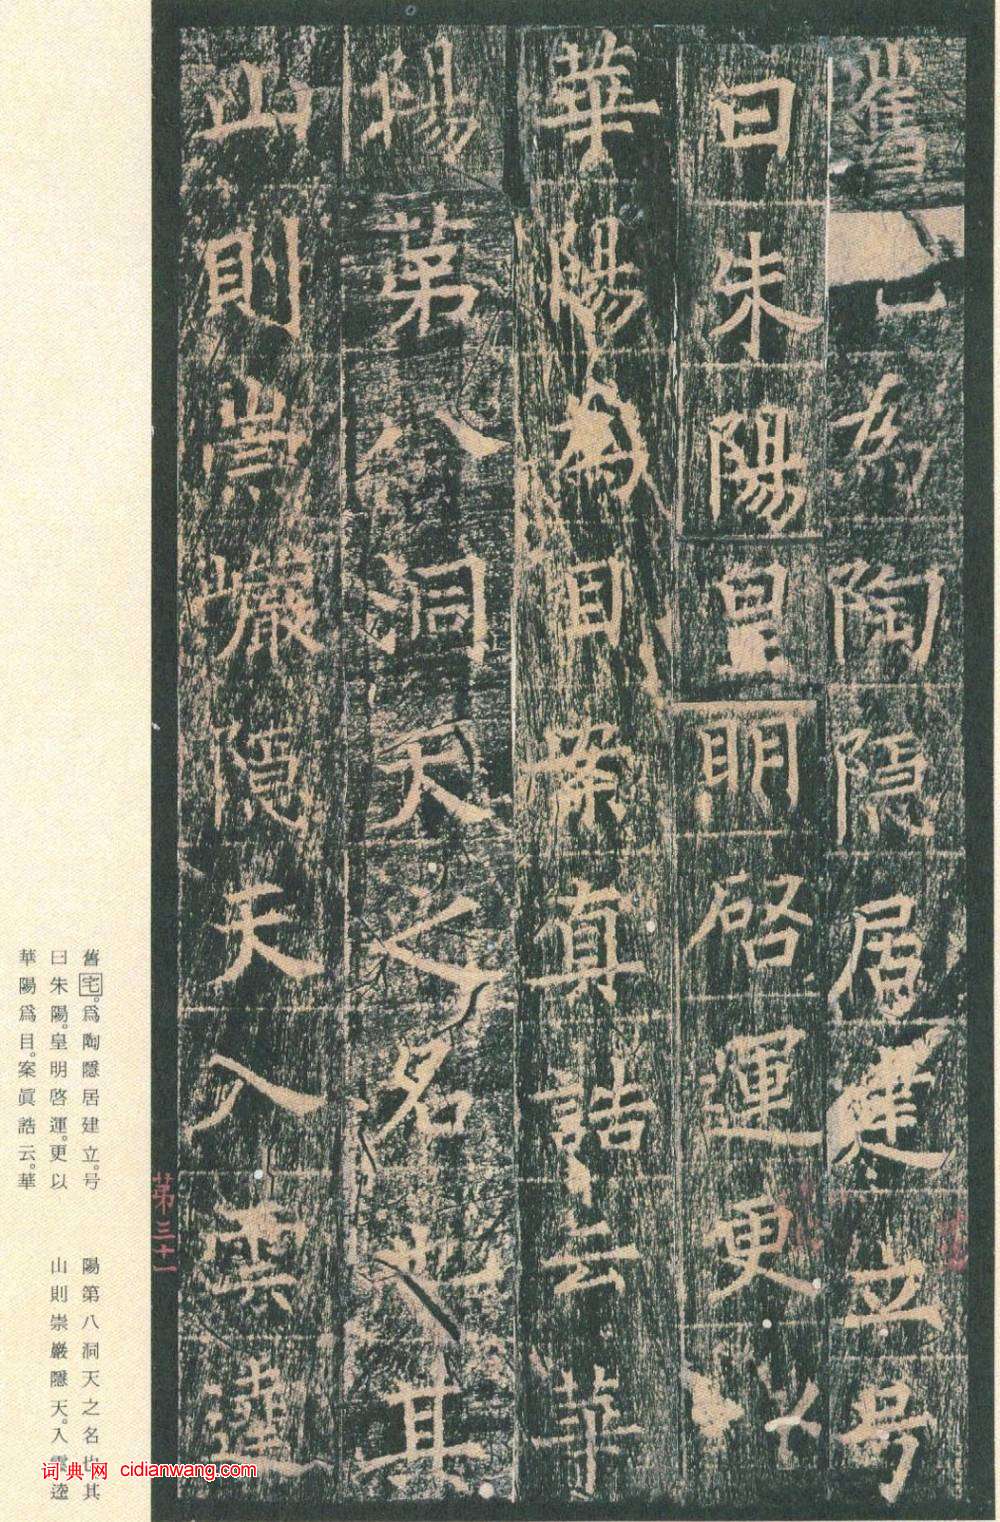 舊為陶隱居建立号
曰朱陽皇明啓運更以
華陽為目案真誥云華
陽第八洞天之名也其
山則崇巖隱天入雲
第三十一
舊宅。爲陶隱居建立。号
曰朱陽。皇明啓運。更以
華陽爲目。案眞誥云。華
陽第八洞天之名也其
山則崇巖隱天。入雲逵
词典网 cidianwang.com